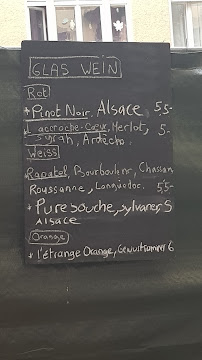 GLAS WEIN
Rot
* Pinot Noir, Alsace 5,5-
L'accroche-Coeur, Merlot, 5,-
Syrah, Ardèche
Weiss
Ragatol, Bourboulenc, Chassan,
Roussanne, Languedoc. 5,5-
* Pure souche, Sylvaner, 5
Alsace
Orange
* L'étrange Orange, 6